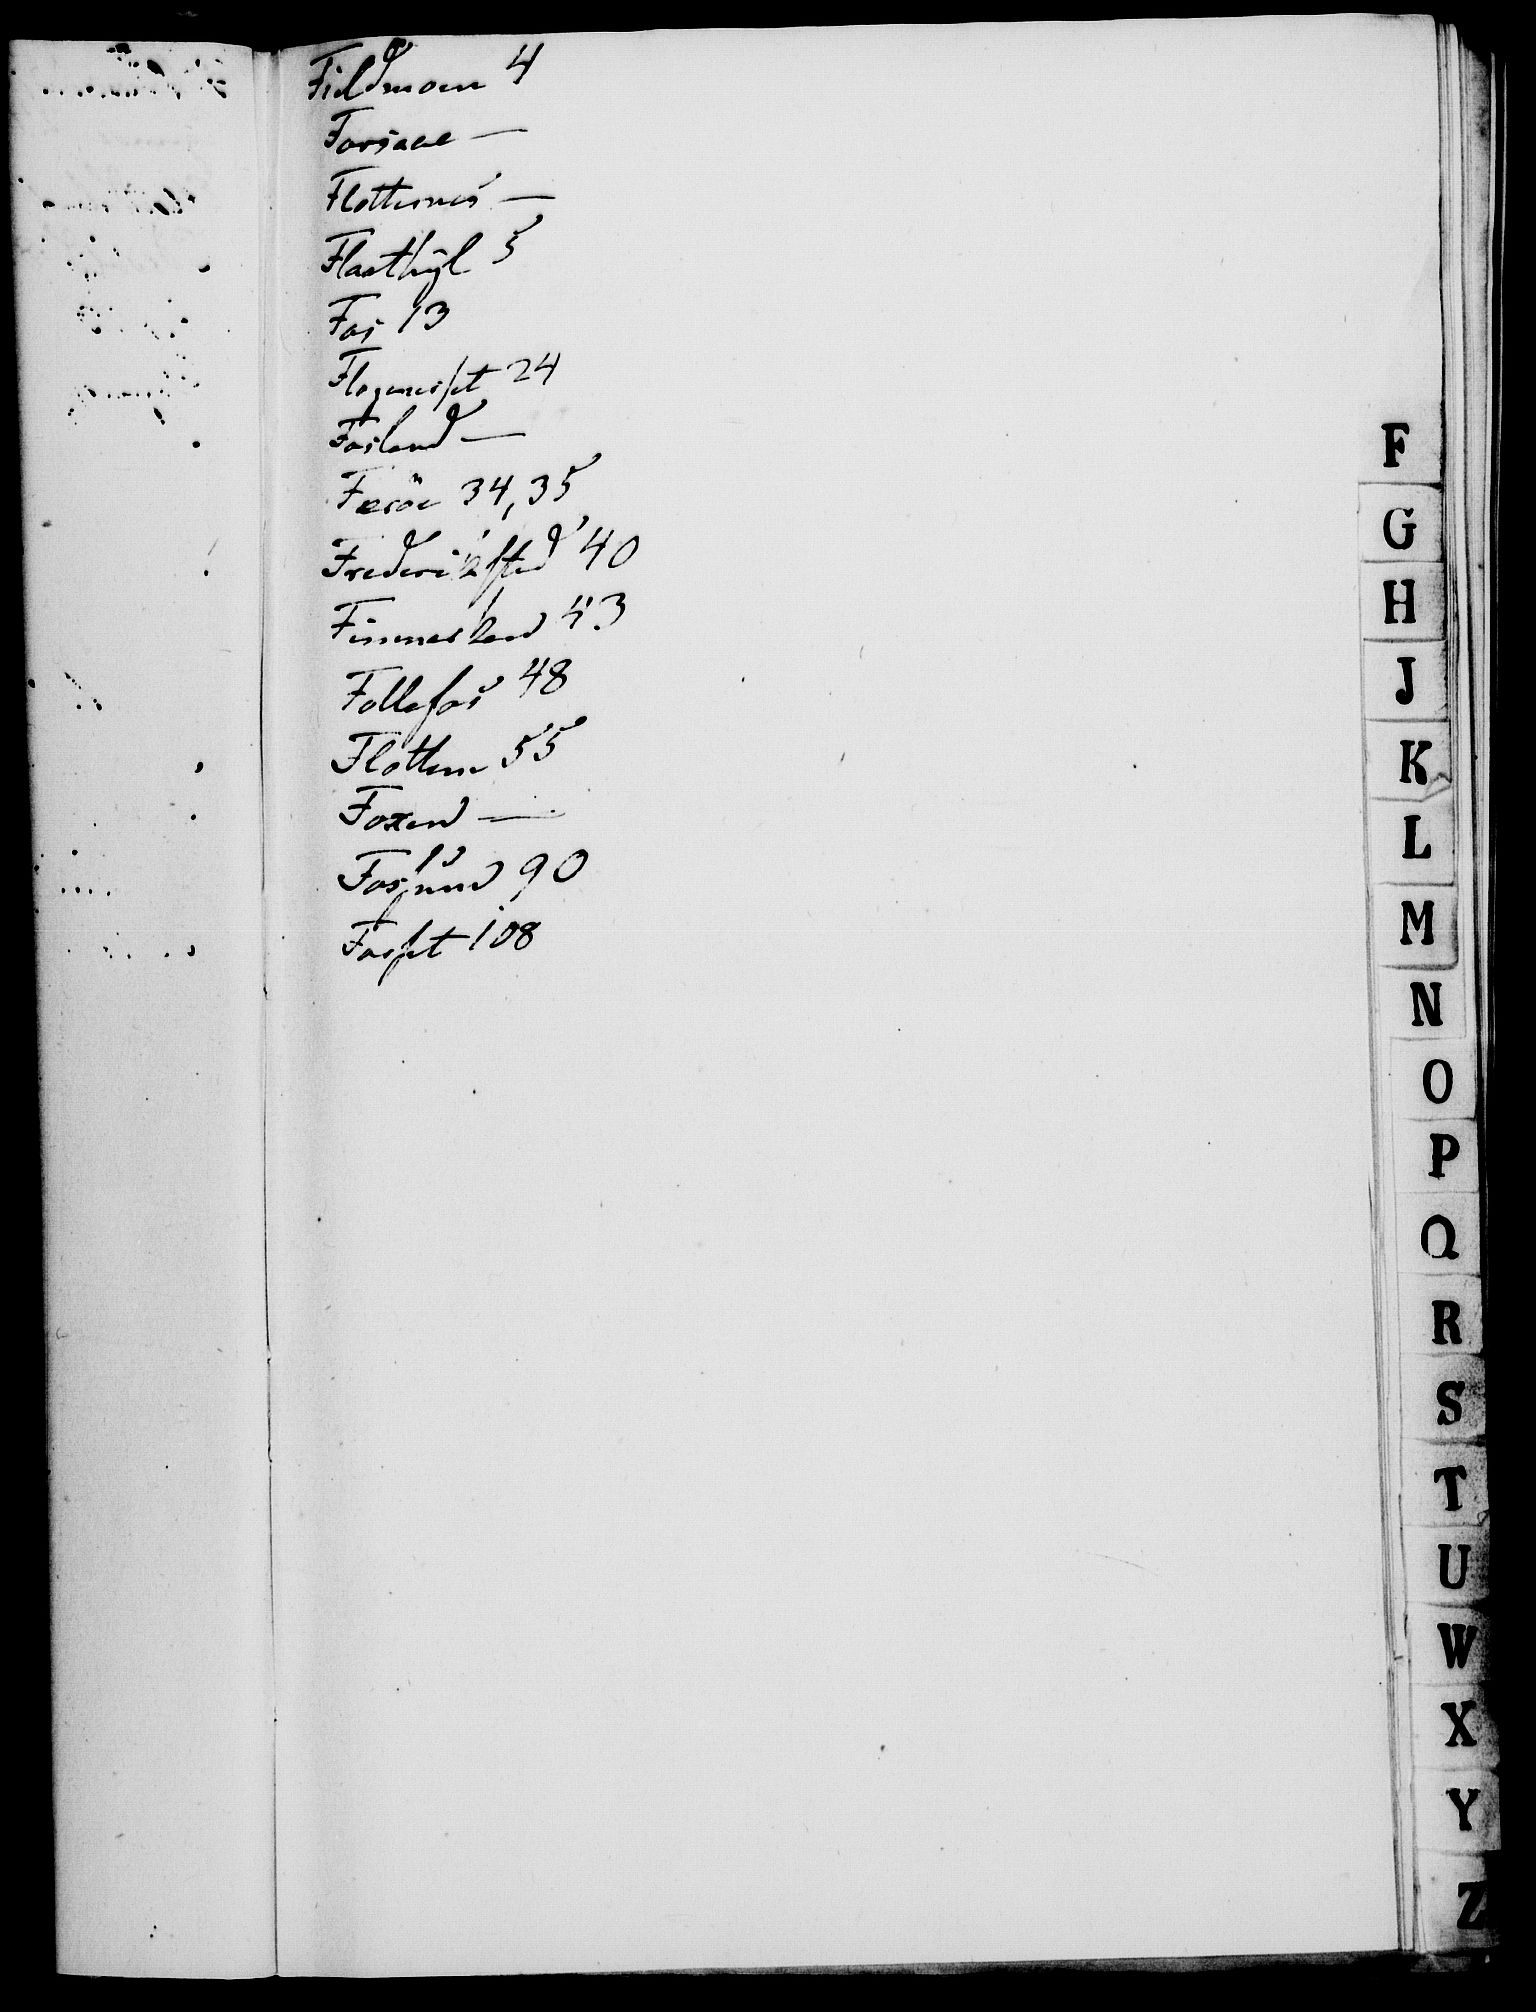 Fieldmoen 4
Forsaae —
Flotternes —
Flaathyl 5
Fos 13
Flogenes/et 24
Fosland —
Færöe 34, 35
Frederiksted 40
Finmarken 43
Follafos 48
Flottum 55
Foxerud —
Fossum 90
Fosset 108
F
G
H
J
K
L
M
N
O
P
Q
R
S
T
U
W
X
Y
Z